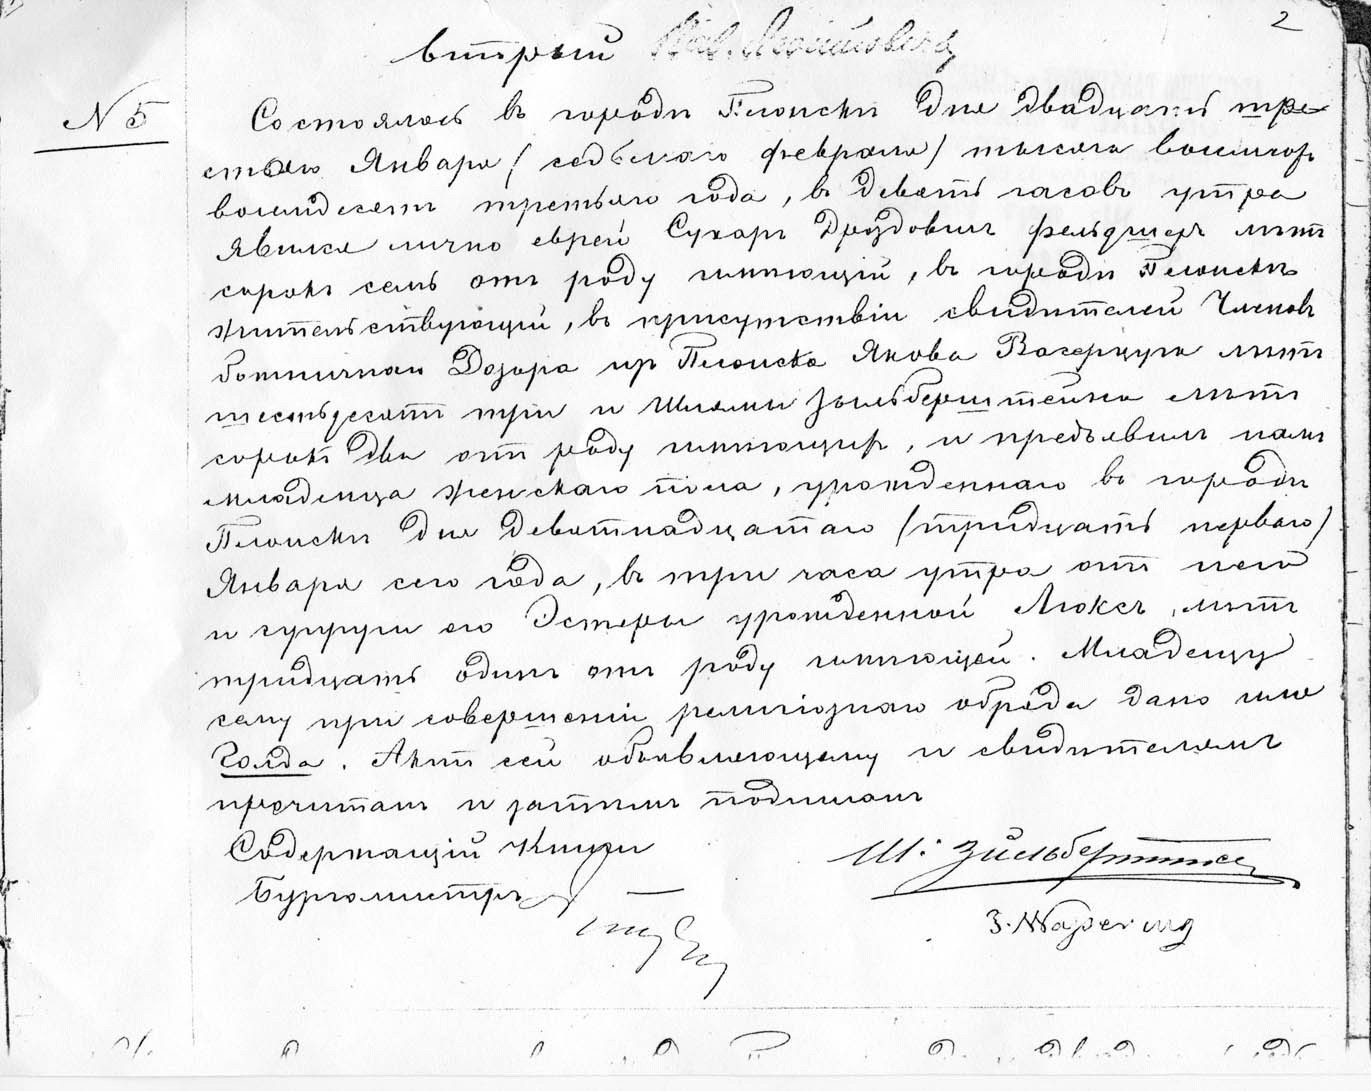 2
второй
№ 5
Состоялось въ городѣ Плонскѣ Дня двадцать тре-
тьяго Января / седьмого февраля / тысяча восемсотъ
восемдесятъ третьяго года, въ девять часовъ утра
Явился лично еврей Сухаръ Дроздовичъ фельдшеръ лѣтъ
сорокъ семь отъ роду имѣющій, въ городѣ Плонскѣ
жительствующій, въ присутствіи свидѣтелей Членовъ
божничнаго Дозора изъ Плонска Якова лѣтъ
шестьдесятъ три и Шлямы Зыльберштейна лѣтъ
сорокъ два отъ роду имѣющихъ, и предъявилъ намъ
младенца женскаго пола, урожденнаго въ городѣ
Плонскѣ Дня девятнадцатаго / тридцать перваго /
Января сего года, въ три часа утра отъ него
и супруги его Эстеры урожденной Люксъ, лѣтъ
тридцать одинъ отъ роду имѣющей. Младенцу
сему при совершеніи религіознаго обряда дано имя
Голда. Актъ сей объявляющему и свидѣтелямъ
прочитанъ и затѣмъ подписанъ
Содержащій Книги
Бургомистръ
Ш. Зильберштейн